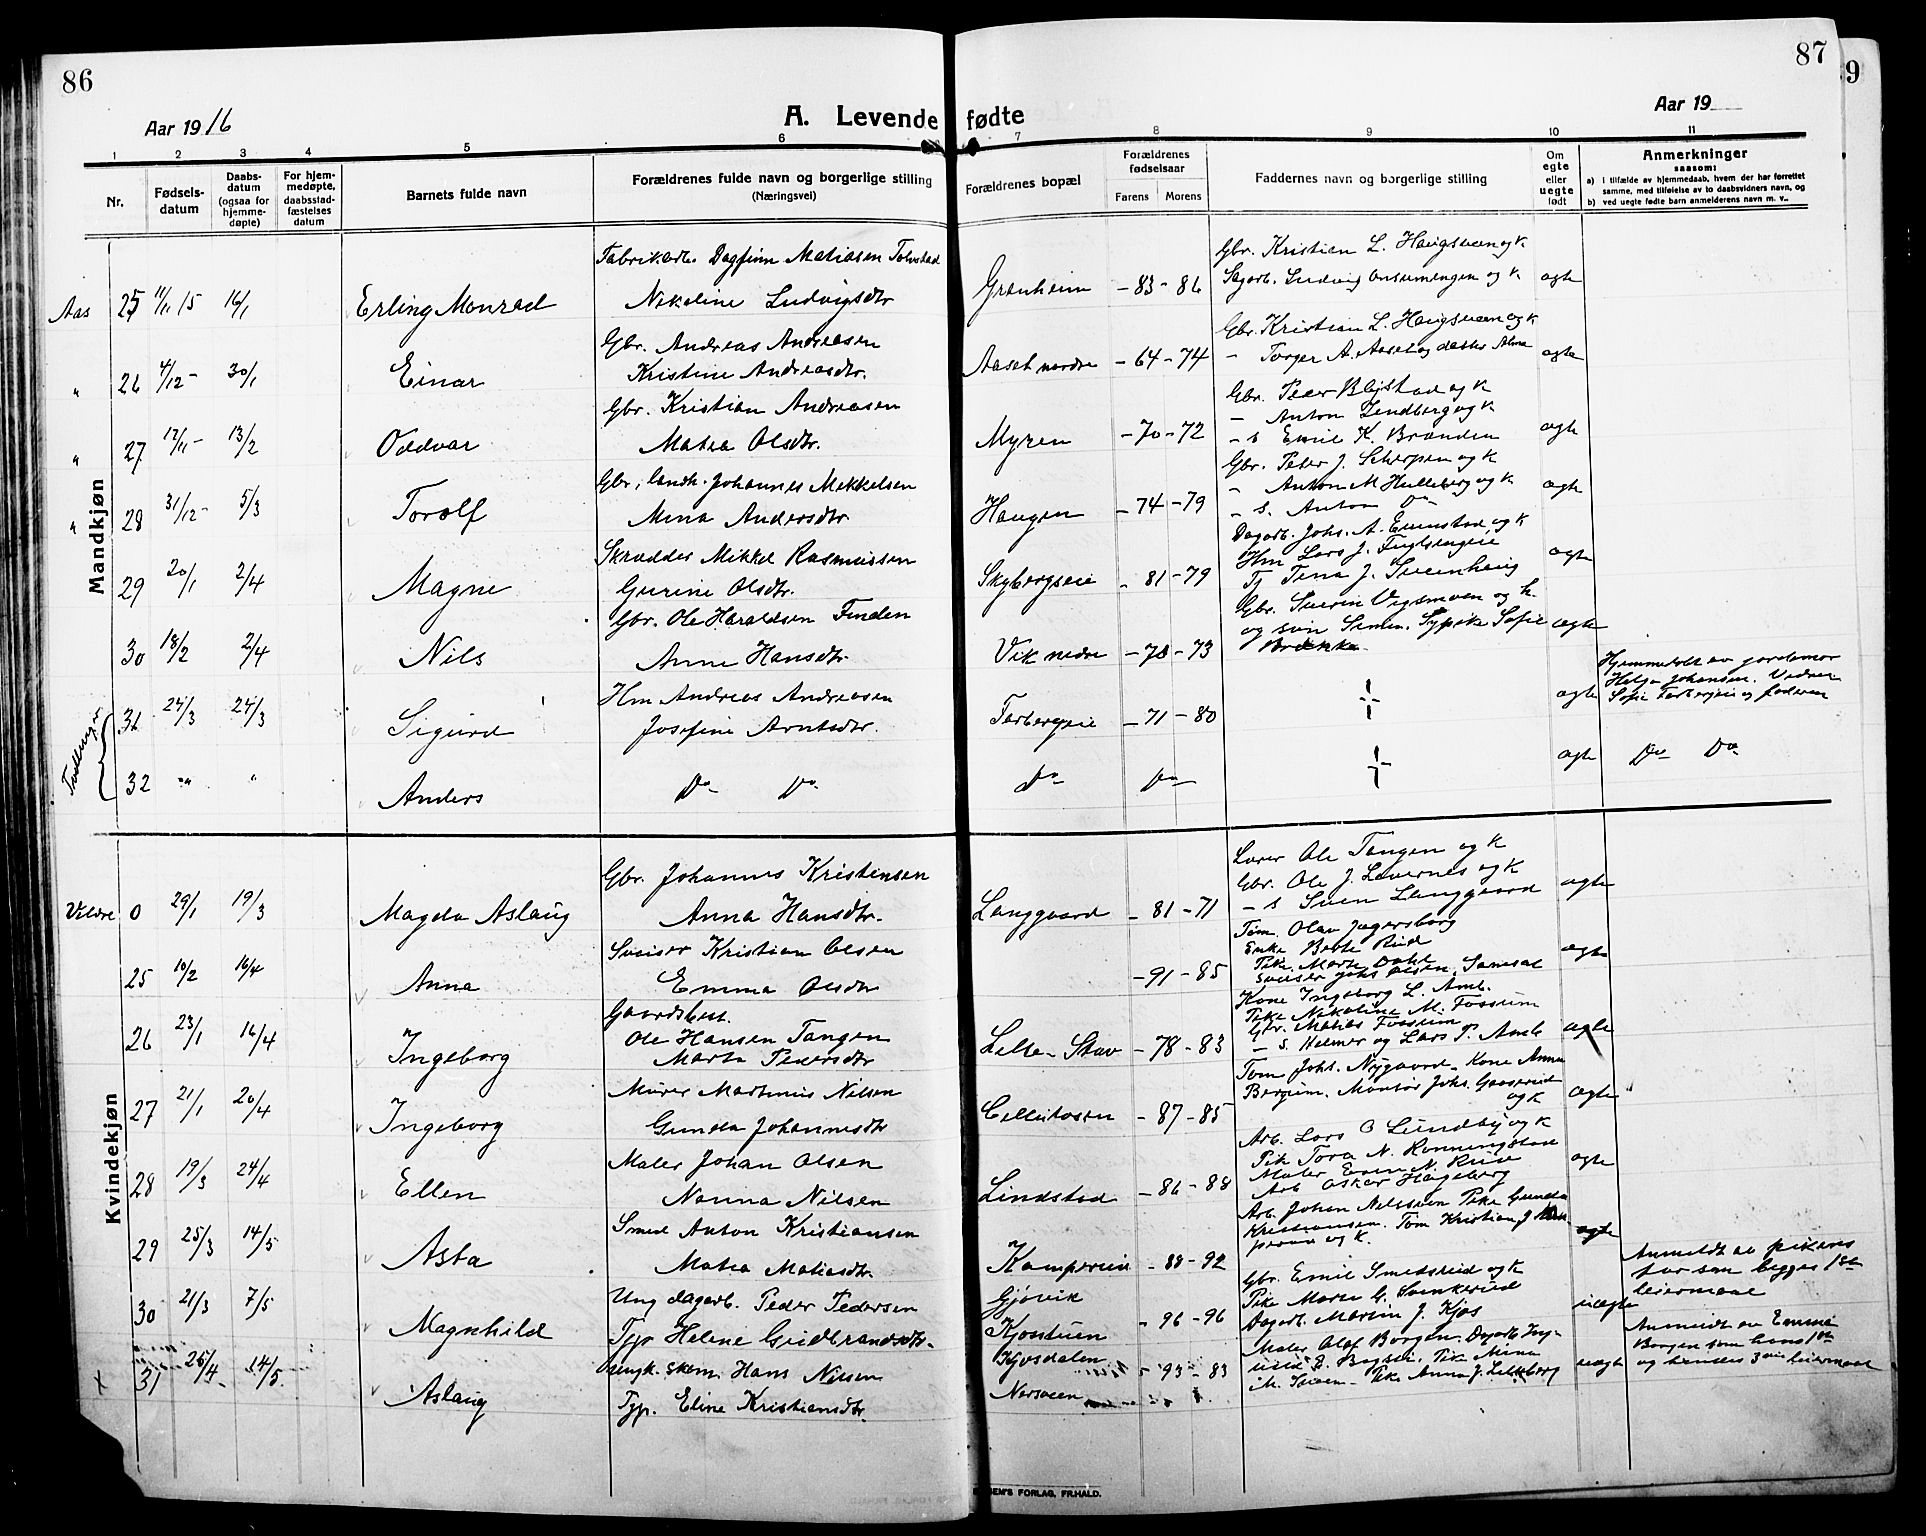 86
87
9
Aar 1916
A. Levende fødte
Aar 19
1 2 3 4 5 6 7 8 9 10 11
Nr.
Fødsels-
datum
Daabs-
datum
(ogsaa for
hjemme-
døpte)
For hjem-
medøpte,
daabsstad-
fæstelses
datum
Barnets fulde navn
Forældrenes fulde navn og borgerlige stilling
(Næringsvei)
Forældrenes bopæl
Forældrenes
fødselsaar
Farens Morens
Faddernes navn og borgerlige stilling
Om
egte
eller
uegte
født
Anmerkninger
saasom:
a) i tilfælde av hjemmedaab, hvem der har forrettet
samme, med tilføielse av to daabsvidners navn, og
b) ved uegte fødte barn anmelderens navn m. v..
Mandkjøn
Fabrikarb. Dagfinn Matiasen Tolvstad
Gbr. Kristian L. Haugsveen og k
Aas 25 11/11 15 16/1 Erling Monrad Nikoline Ludvigsdtr Grønheim -83-86 Sagarb. Ludvig og k ægte
Gbr. Andreas Andreasen
Gbr. Kristian L. Haugsveen og k
" 26 4/12- 30/1 Einar Kristine Andreasdtr. Aaset nordre -64-74 - Torger A. Aaset og datter Alma ægte
Gbr. Kristian Andreasen
Gbr. Peder Blystad og k
- Anton Lindberg og k
" 27 17/11- 13/2 Oddvar Matea Olsdtr. Myren -70-72 - s Emil K. Brænden ægte
Gbr, landh. Johannes Mikkelsen
Gbr. Peter J. Skjerpen og k
- Anton M Hulleberg og k
" 28 31/12- 5/3 Torolf Mina Andersdtr Haugen -74-79 - s. Anton Do ægte
Skrædder Mikkel Rasmussen
Dagarb. Johs. A. Evenstad og k
Hm Lars J. Fuglsengeie
29 20/1 2/4 Magne Gurine Olsdtr. Skybergseie -81-79 Tj Tina J. Sveenhaug ægte
Gbr. Ole Haraldsen Finden
Gbr. Sverin Vigsmoen og k.
og søn Simen. Sypike Sofie
30 18/2 2/4 Nils Anne Hansdtr Vik nedre -70-73 Brække ægte
Hm Andreas Andreasen
Hjemmedøbt av jordemor
Helga Johansen. Vidner
Sofie Torbergeie og faderen
Tvillinger
31 24/3 24/3 Sigurd Josefine Arntsdtr. Torbergeie -71-80 ægte
32 " " Anders Do Do Do Do ægte Do Do
Kvindekjøn
Gbr. Johannes Kristensen
Lærer Ole Tangen og k
Gbr. Ole J. Løvernes og k
Veldre 0 29/1 19/3 Magda Aslaug Anna Hansdtr. Langgaard -81-71 - s Sven Langgaard ægte
Sveiser Kristian Olsen
Tøm. Olav Jægersborg
Enke Berte Rud
Pike Marte Dahl
25 10/2 16/4 Anna Emma Olsdtr -91-85 Sveiser Johs Olsen, ægte
Gaardsbest.
Ole Hansen Tangen
Kone Ingeborg L. Amb.
Pike Nikoline M. Fossum
Gbr. Matias Fossum
26 23/1 16/4 Ingeborg Marta Pedersdtr Lille-Stav -78-83 - s. Helmer og Lars P. Amb ægte
Murer Martinus Nilsen
Tøm Johs. Nygaard. Kone Anna
Bergum. Montør Johs. Gaaserud
og k
27 21/1 20/4 Ingeborg Gunda Johannesdtr Cellulosen -87-85 ægte
Maler Johan Olsen
Arb. Lars O Lundby og k
Pik Tora N. Rønningstad
Maler Even N. Rise
28 19/3 24/4 Ellen Nanna Nilsen Lindstad -86-88 Arb Oskar Hageberg ægte
Smed Anton Kristiansen
Arb. Johan Nilssveen Pike Gunda
Kristiansen. Tøm Kristian J
og k.
29 25/3 14/5 Asta Matea Matiasdtr. Kampereie -88-92 ægte
Ung dagarb. Peder Pedersen
Gjøvik
Gbr. Emil Smedsrud og k
Pike Marie G. Svenkerud
Anmeldt av pikens
far som begges 1ste
leiermaal
30 21/3 7/5 Magnhild Typ Helene Gudbrandsdtr. Kjosveen -96-96 Dagarb. Martin J. Kjos uægte
Ungk. skom. Hans Nilsen
Kjosdalen
Maler Olaf Borgen. Dagarb Ing-
Pike Mina
Anmeldt av Emma
Borgen som hans 1ste
og hendes 3die leiermaal
x 31 25/4 14/5 Aslaug Typ. Eline Kristiansdtr. Norsveen -93-83 M. Sveen - Pike Anna J. Lilleborg uægte
FORLAG, FR.HALD.